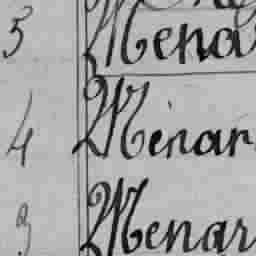 5 Mena
4 Ménar
3 Menar